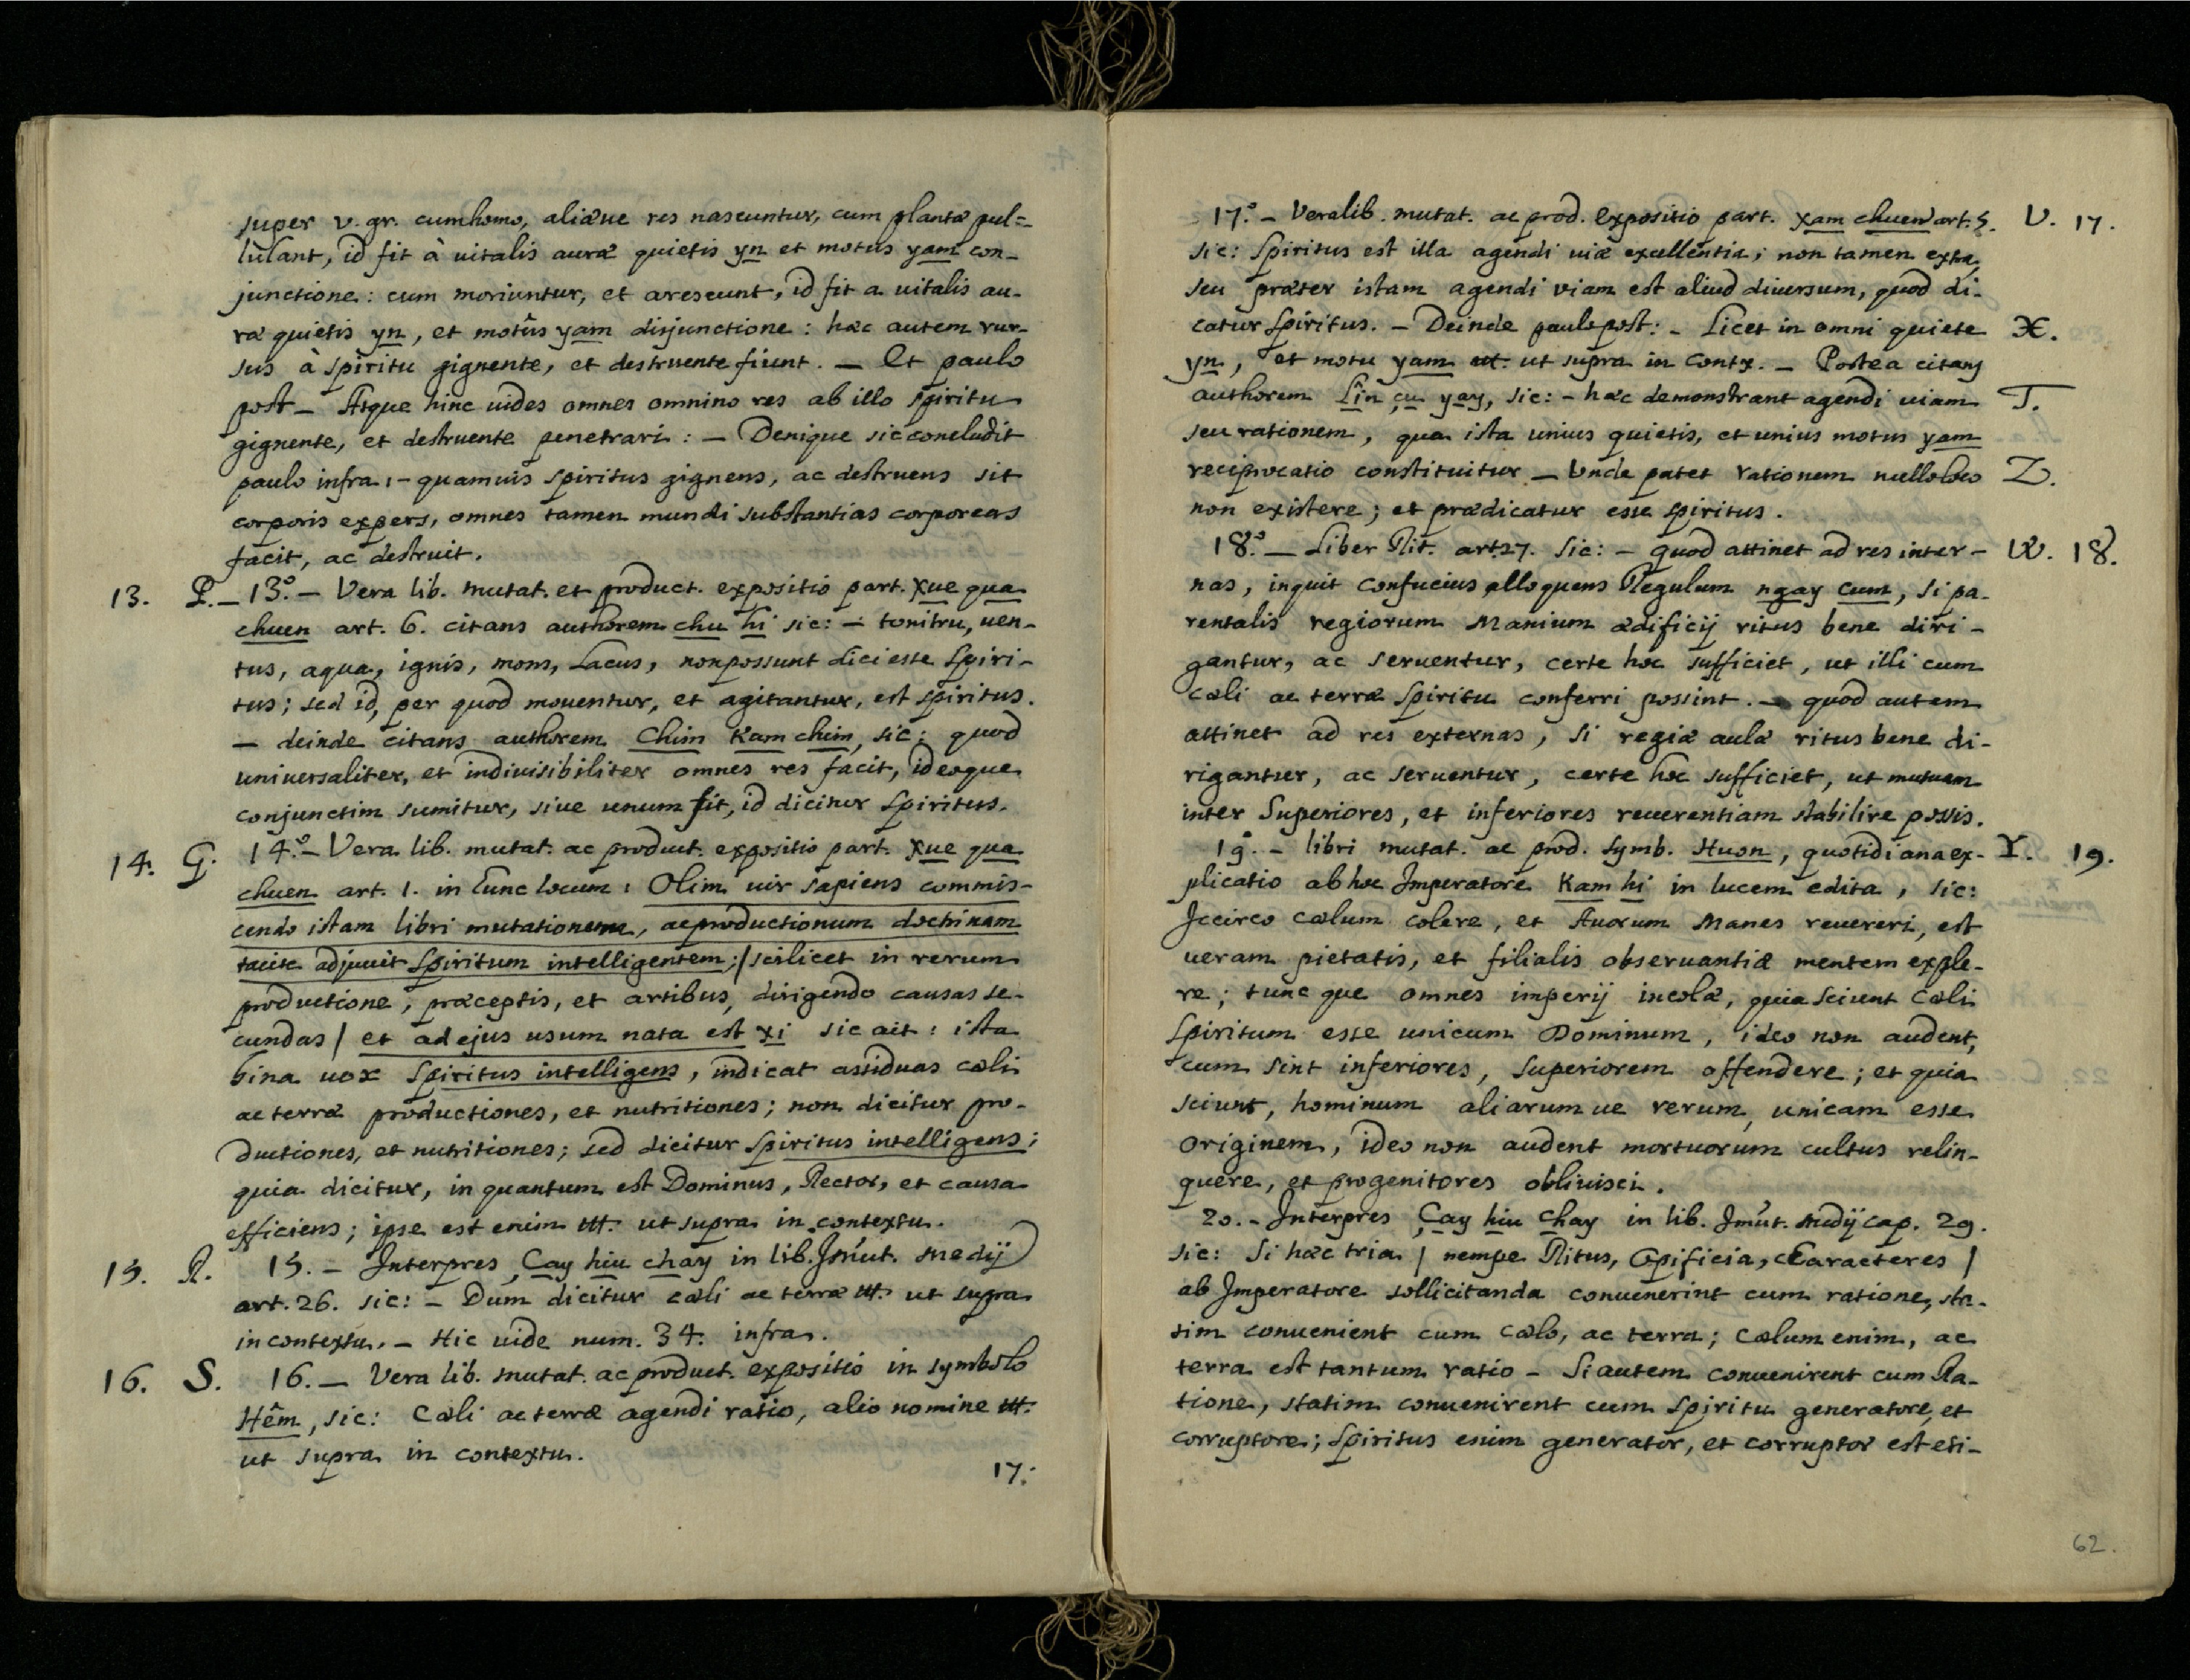 super v. gr. cum homo, aliæue res nascuntur, cum plantæ pul=
lùlant, id fit à uitalis auræ quietis yn et motus yam con-
junctione: cum moriuntur, et arescunt, id fit a uitalis au-
ræ quietis yn, et motûs yam disjunctione: hæc autem rur-
sus à spiritu gignente, et destruente fiunt. — Et paulo
post — Atque hinc uides omnes omnino res ab illo spiritu
gignente, et destruente penetrari: — Denique sic concludit
paulo infra: — quamuis spiritus gignens, ac destruens sit
corporis expers, omnes tamen mundi substantias corporeas
facit, ac destruit.
13. P. — 13.° — Vera lib. mutat. et product. expositio part. xue qua
chuen art. 6. citans authorem chu hi sic: — tonitru, uen-
tus, aqua, ignis, mons, Lacus, non possunt dici esse Spiri-
tus; sed id, per quod mouentur, et agitantur, est spiritus.
— deinde citans authorem Chim Kam chim, sic: quod
uniuersaliter, et indiuisibiliter omnes res facit, ideoque
conjunctim sumitur, siue unum fit, id dicitur Spiritus.
14. G. 14.° — Vera lib. mutat. ac product. expositio part. xue qua
chuen art. 1. in hunc locum: Olim uir sapiens commis-
cendo istam libri mutationem, ac productionum doctrinam
tacite adjuuit Spiritum intelligentem; / scilicet in rerum
productione, præceptis, et artibus, dirigendo causas se-
cundas / et ad ejus usum nata est xi sic ait: ista
bina uox Spiritus intelligens, indicat assiduas cæli
ac terræ productiones, et nutritiones; non dicitur pro-
ductiones, et nutritiones; sed dicitur Spiritus intelligens;
quia dicitur, in quantum est Dominus, Rector, et causa
efficiens; ipse est enim ut supra in contextu.
15. R. 15. — Interpres Çay hiu chay in lib. Jm̃ut. medij
art. 26. sic: — Dum dicitur cæli ac terræ ut supra
in contextu. — Hic uide num. 34. infra.
16. S. 16. — Vera lib. mutat. ac product. expositio in symbolo
Hêm, sic: Cæli ac terræ agendi ratio, alio nomine
ut supra in contextu.
17.
17.° — Vera lib. mutat. ac prod. expositio part. xam chuen art. 5. V. 17.
sic: Spiritus est illa agendi uiæ excellentia; non tamen extra,
seu præter istam agendi viam est aliud diuersum, quod di-
catur Spiritus. — Deinde paulo post: — Licet in omni quiete X.
yn, et motu yam ut supra in Contx. — Postea citans
authorem Lîn çu yay, sic: — hæc demonstrant agendi uiam T.
seu rationem, qua ista unius quietis, et unius motus yam
reciprocatio constituitur — Unde patet rationem nullo loco Z.
non existere; et prædicatur esse Spiritus.
18.° — Liber Rit. art. 27. Sic: — quod attinet ad res inter- W. 18.
nas, inquit Confucius alloquens Regulum ngay cum, si pa-
rentalis regiorum Manium ædificij ritus bene diri-
gantur, ac seruentur, certe hoc sufficiet, ut illi cum
Cæli ac terræ Spiritu conferri possint. — quod autem
attinet ad res externas, si regiæ aulæ ritus bene di-
rigantur, ac seruentur, certe hoc sufficiet, ut mutuam
inter Superiores, et inferiores reuerentiam stabilire possis.
19.° — libri mutat. ac prod. Symb. Huon, quotidiana ex- Y. 19.
plicatio ab hoc Imperatore Kam hi in lucem edita, sic:
Iccirco cælum colere, et Auorum Manes reuereri, est
ueram pietatis, et filialis obseruantiæ mentem exple-
re; tunc que omnes imperij incolæ, quia sciunt Cæli
Spiritum esse unicum Dominum, ideo non audent,
cum sint inferiores, Superiorem offendere; et quia
sciunt, hominum aliarum ue rerum, unicam esse
originem, ideo non audent mortuorum cultus relin-
quere, et progenitores obliuisci.
20. — Interpres Çay hiu Chay in lib. Jm̃ut. medij cap. 29.
sic: Si hæc tria / nempe Ritus, Opificia, Characteres /
ab Imperatore sollicitanda conuenerint cum ratione, sta-
tim conuenient cum Cælo, ac terra; Cælum enim, ac
terra est tantum ratio — Si autem conuenirent cum Ra-
tione, statim conuenirent cum Spiritu generatore, et
corruptore; Spiritus enim generator, et corruptor est eti-
62.